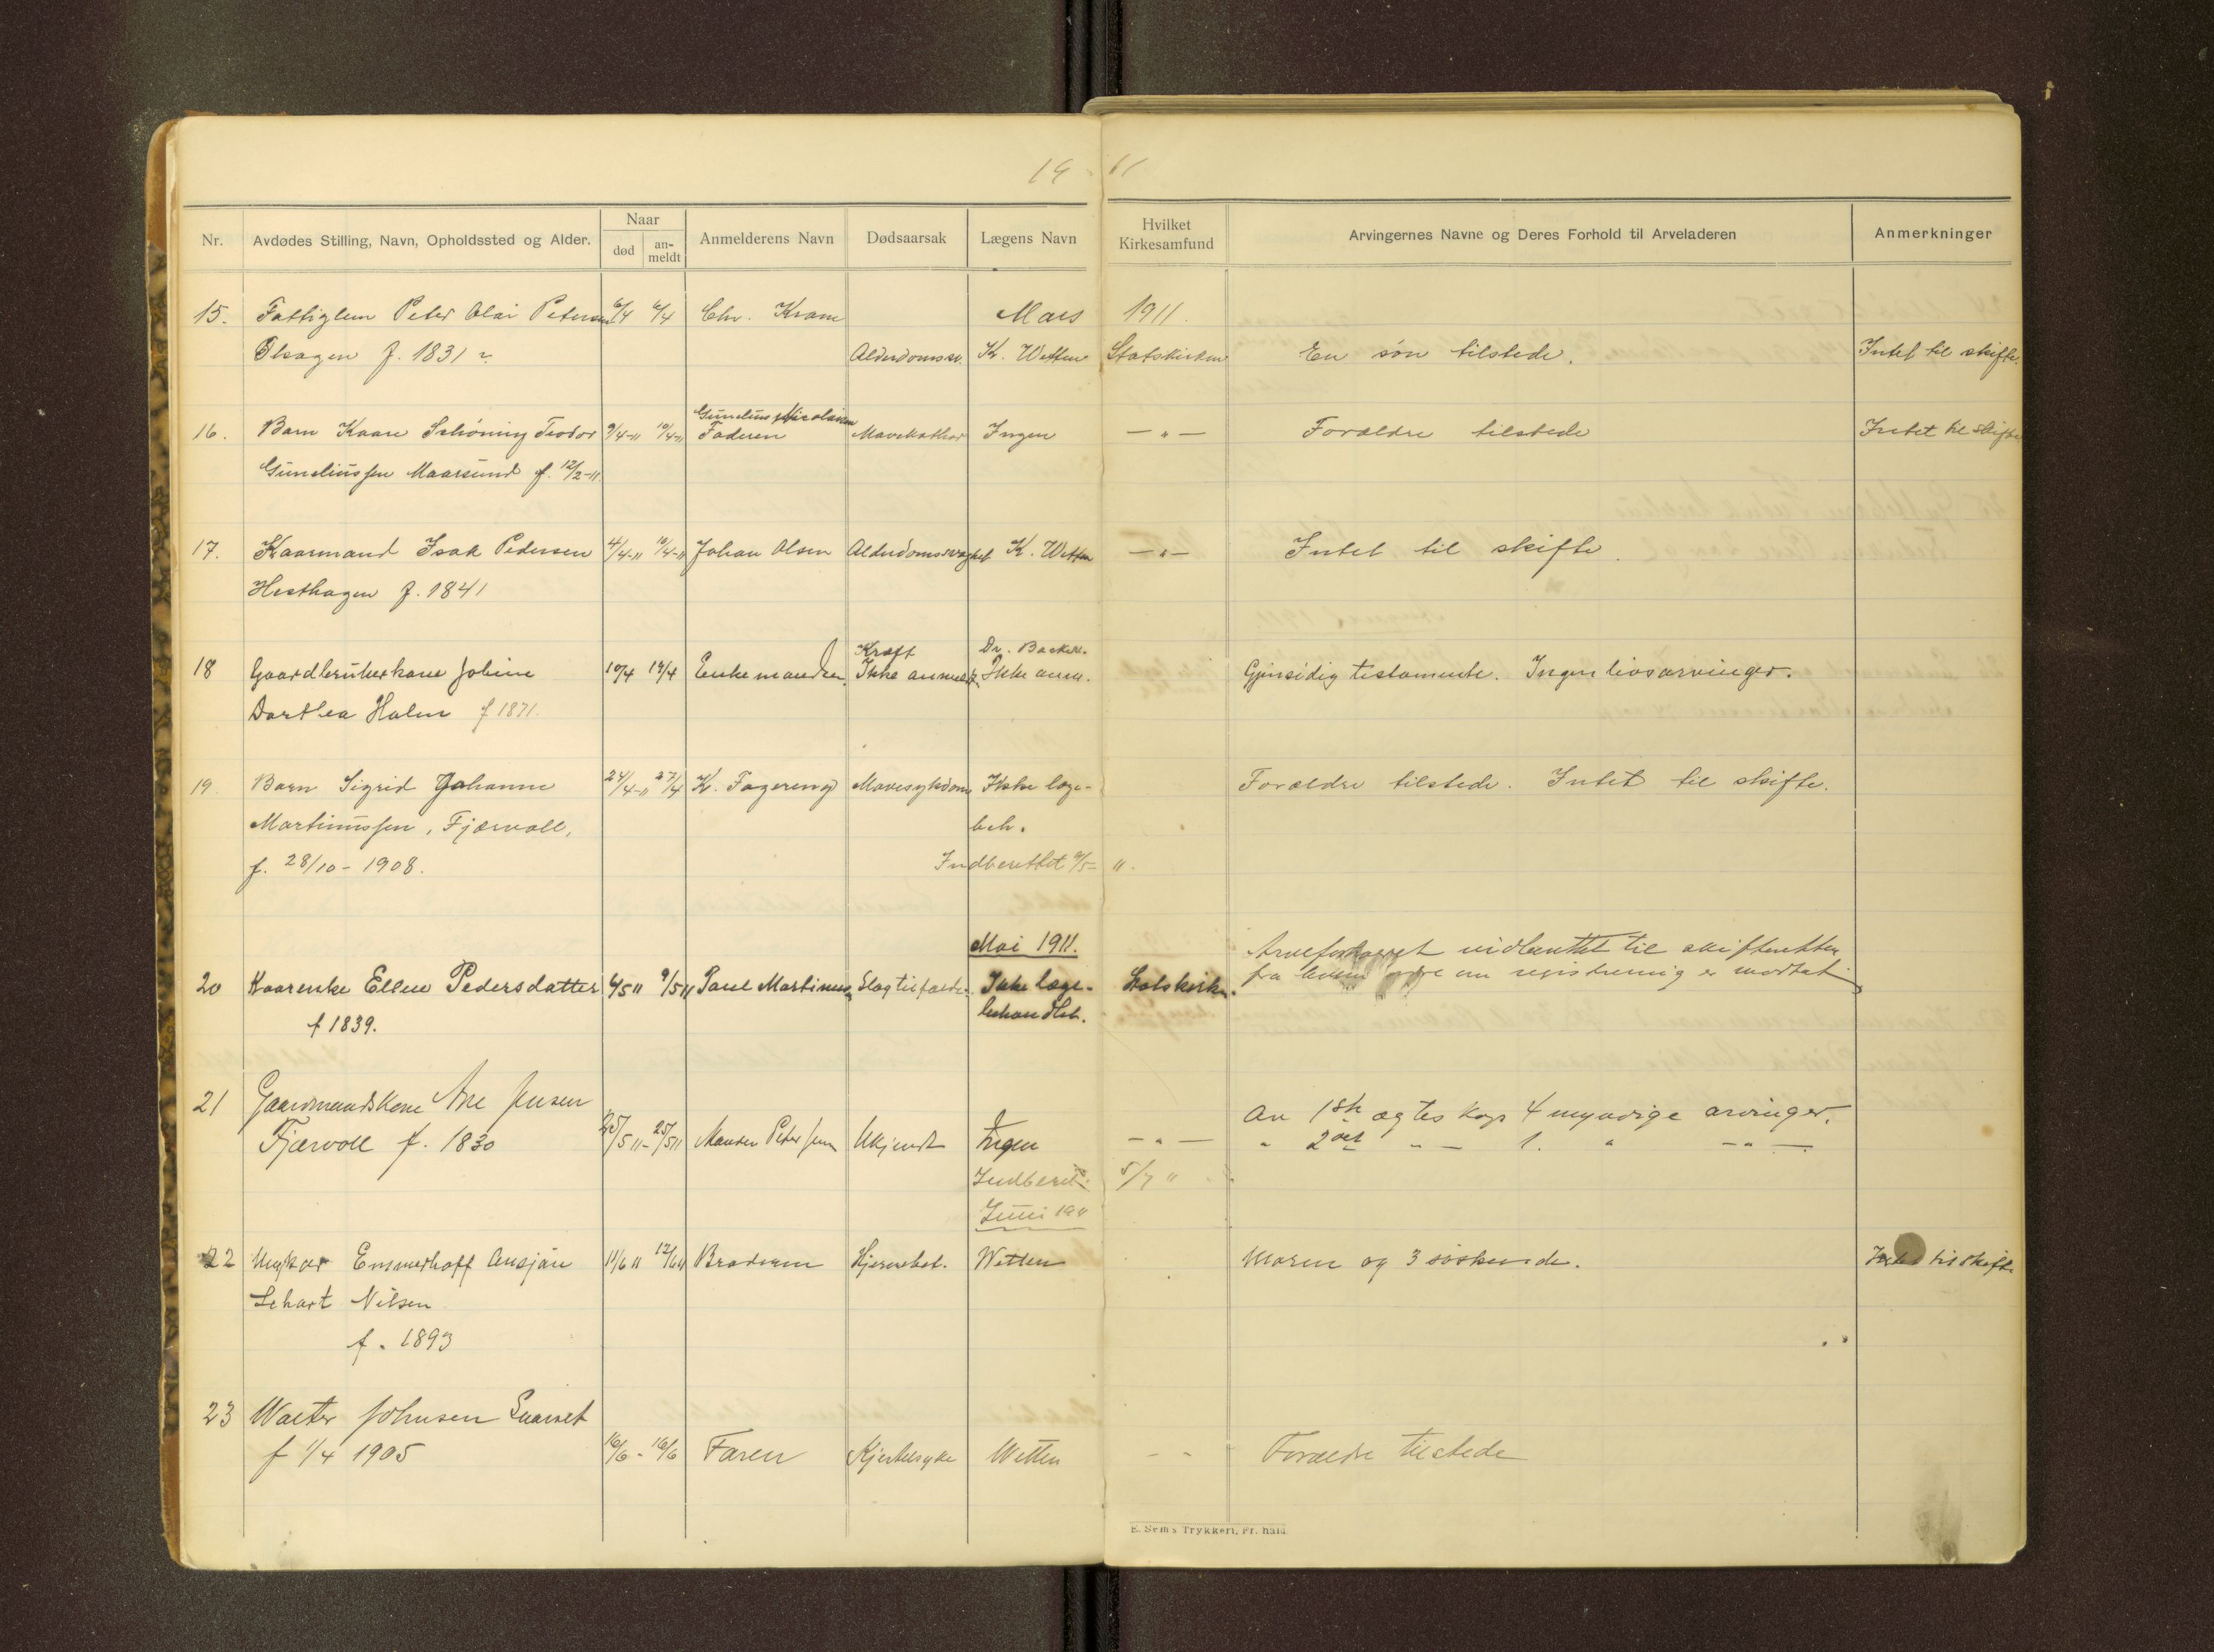 19 11
Nr. Avdødes Stilling, Navn, Opholdssted og Alder. Naar død an-meldt Anmelderens Navn Dødsaarsak Lægens Navn Hvilket Kirkesamfund Arvingernes Navne og Deres Forhold til Arveladeren Anmerkninger
15. Fattiglem Peter Olai Petersen 6/4 6/4 Chr. Krane Mars 1911.
f. 1831 Alderdomssv. K. Wetten Statskirken En søn tilstede. Intet til skifte.
Gunelius Nicolaisen
16. Barn Kaare Schöning Teodor 9/4-11 10/4-11 Faderen Mavekathar Ingen — " — Forældre tilstede Intet til skifte
Guneliussen Maarsund f. 12/2-11.
17. Kaarmand Isak Pedersen 4/4-11 10/4-11 Johan Olsen Alderdomssvaghet K. Wetten — " — Intet til skifte.
Hesthagen f. 1841
Kræft Dr. Backer.
18 Gaardbrukerkone Joline 10/4 19/4 Enkemanden. Ikke anmeldt. Ikke anm. Gjensidig testamente. Ingen livsarvinger.
Dorthea Holm f 1871.
19. Barn Sigrid Johanne 24/4-11 27/4 K. Fagereng Mavesykdom Ikke læge- Forældre tilstede. Intet til skifte.
Martinussen, Fjærvoll, beh.
f. 28/10-1908. Indberettet 9/5- 11.
Mai 1911.
Arveforlaget indberettet til skifteretten
20 Kaarenke Ellen Pedersdatter 4/5 11 9/5 11 Paul Martinus Slagtilfælde. Ikke læge- Statskirke. fra hvem ordre om registrering er modtat
f 1839. behandlet.
21 Gaardmandskone Ane Jensen Av 1ste ægteskap 4 myndige arvinger.
Fjærvoll f. 1830 25/5 11- 25/5 11 Petersen Ukjendt Ingen — " — " 2det " — 1. " — " —
Indberet. 5/7 11
Juni 1911
22 Ungkar Emmerhoff Ansjøn 11/6 11 12/6 11 Broderen Hjertebet. Wetten Moren og 3 søskende. Intet til skifte
Schart Nilsen
f. 1893
23 Walter Johnsen
f 1/4 1905 16/6 - 16/6 Faren Kjertelsyke Wetten - - Forældre tilstede
E. Sem's Trykkeri, Fr. hald.